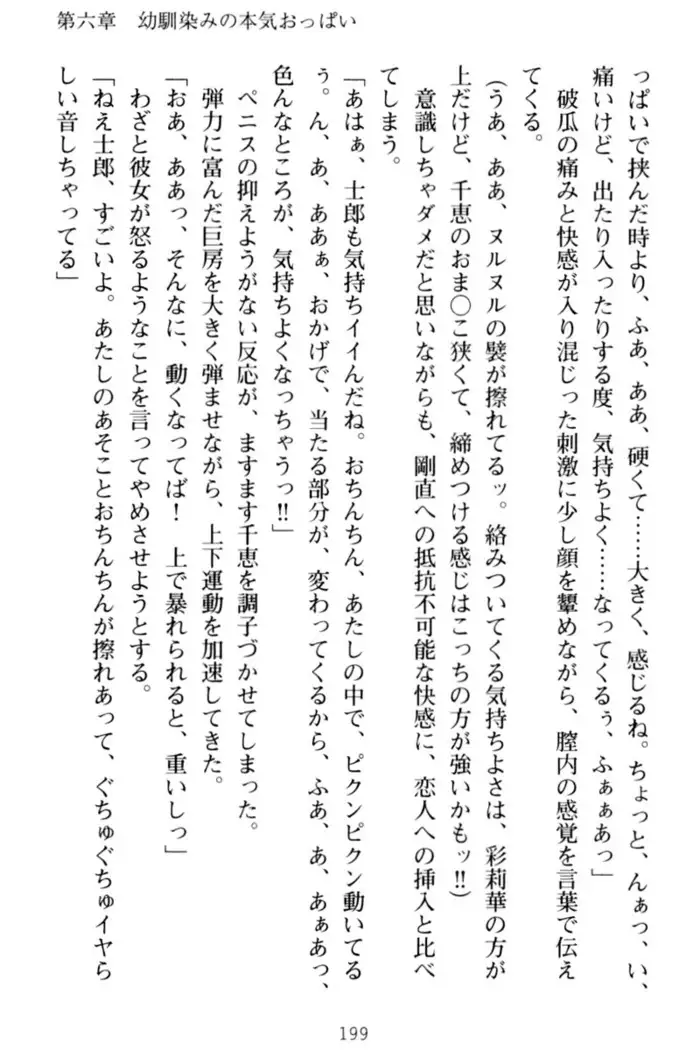 第六章　幼馴染みの本気おっぱい
っぱいで挟んだ時より、ふあ、ああ、硬くて……大きく、感じるね。ちょっと、んぁっ、い、
痛いけど、出たり入ったりする度、気持ちよく……なってくるぅ、ふぁぁあっ」
破瓜の痛みと快感が入り混じった刺激に少し顔を顰めながら、膣内の感覚を言葉で伝え
てくる。
（うあ、ああ、ヌルヌルの襞が擦れてるッ。絡みついてくる気持ちよさは、彩莉華の方が
上だけど、千恵のおま○こ狭くて、締めつける感じはこっちの方が強いかもッ!!）
意識しちゃダメだと思いながらも、剛直への抵抗不可能な快感に、恋人への挿入と比べ
てしまう。
「あはぁ、士郎も気持ちイイんだね。おちんちん、あたしの中で、ピクンピクン動いてる
ぅ。ん、あ、ああぁ、おかげで、当たる部分が、変わってくるから、ふあ、あ、あぁあっ、
色んなところが、気持ちよくなっちゃうっ!!」
ペニスの抑えようがない反応が、ますます千恵を調子づかせてしまった。
弾力に富んだ巨房を大きく弾ませながら、上下運動を加速してきた。
「おあ、ああっ、そんなに、動くなってば！　上で暴れられると、重いしっ」
わざと彼女が怒るようなことを言ってやめさせようとする。
「ねえ士郎、すごいよ。あたしのあそことおちんちんが擦れあって、ぐちゅぐちゅイヤら
しい音しちゃってる」
199